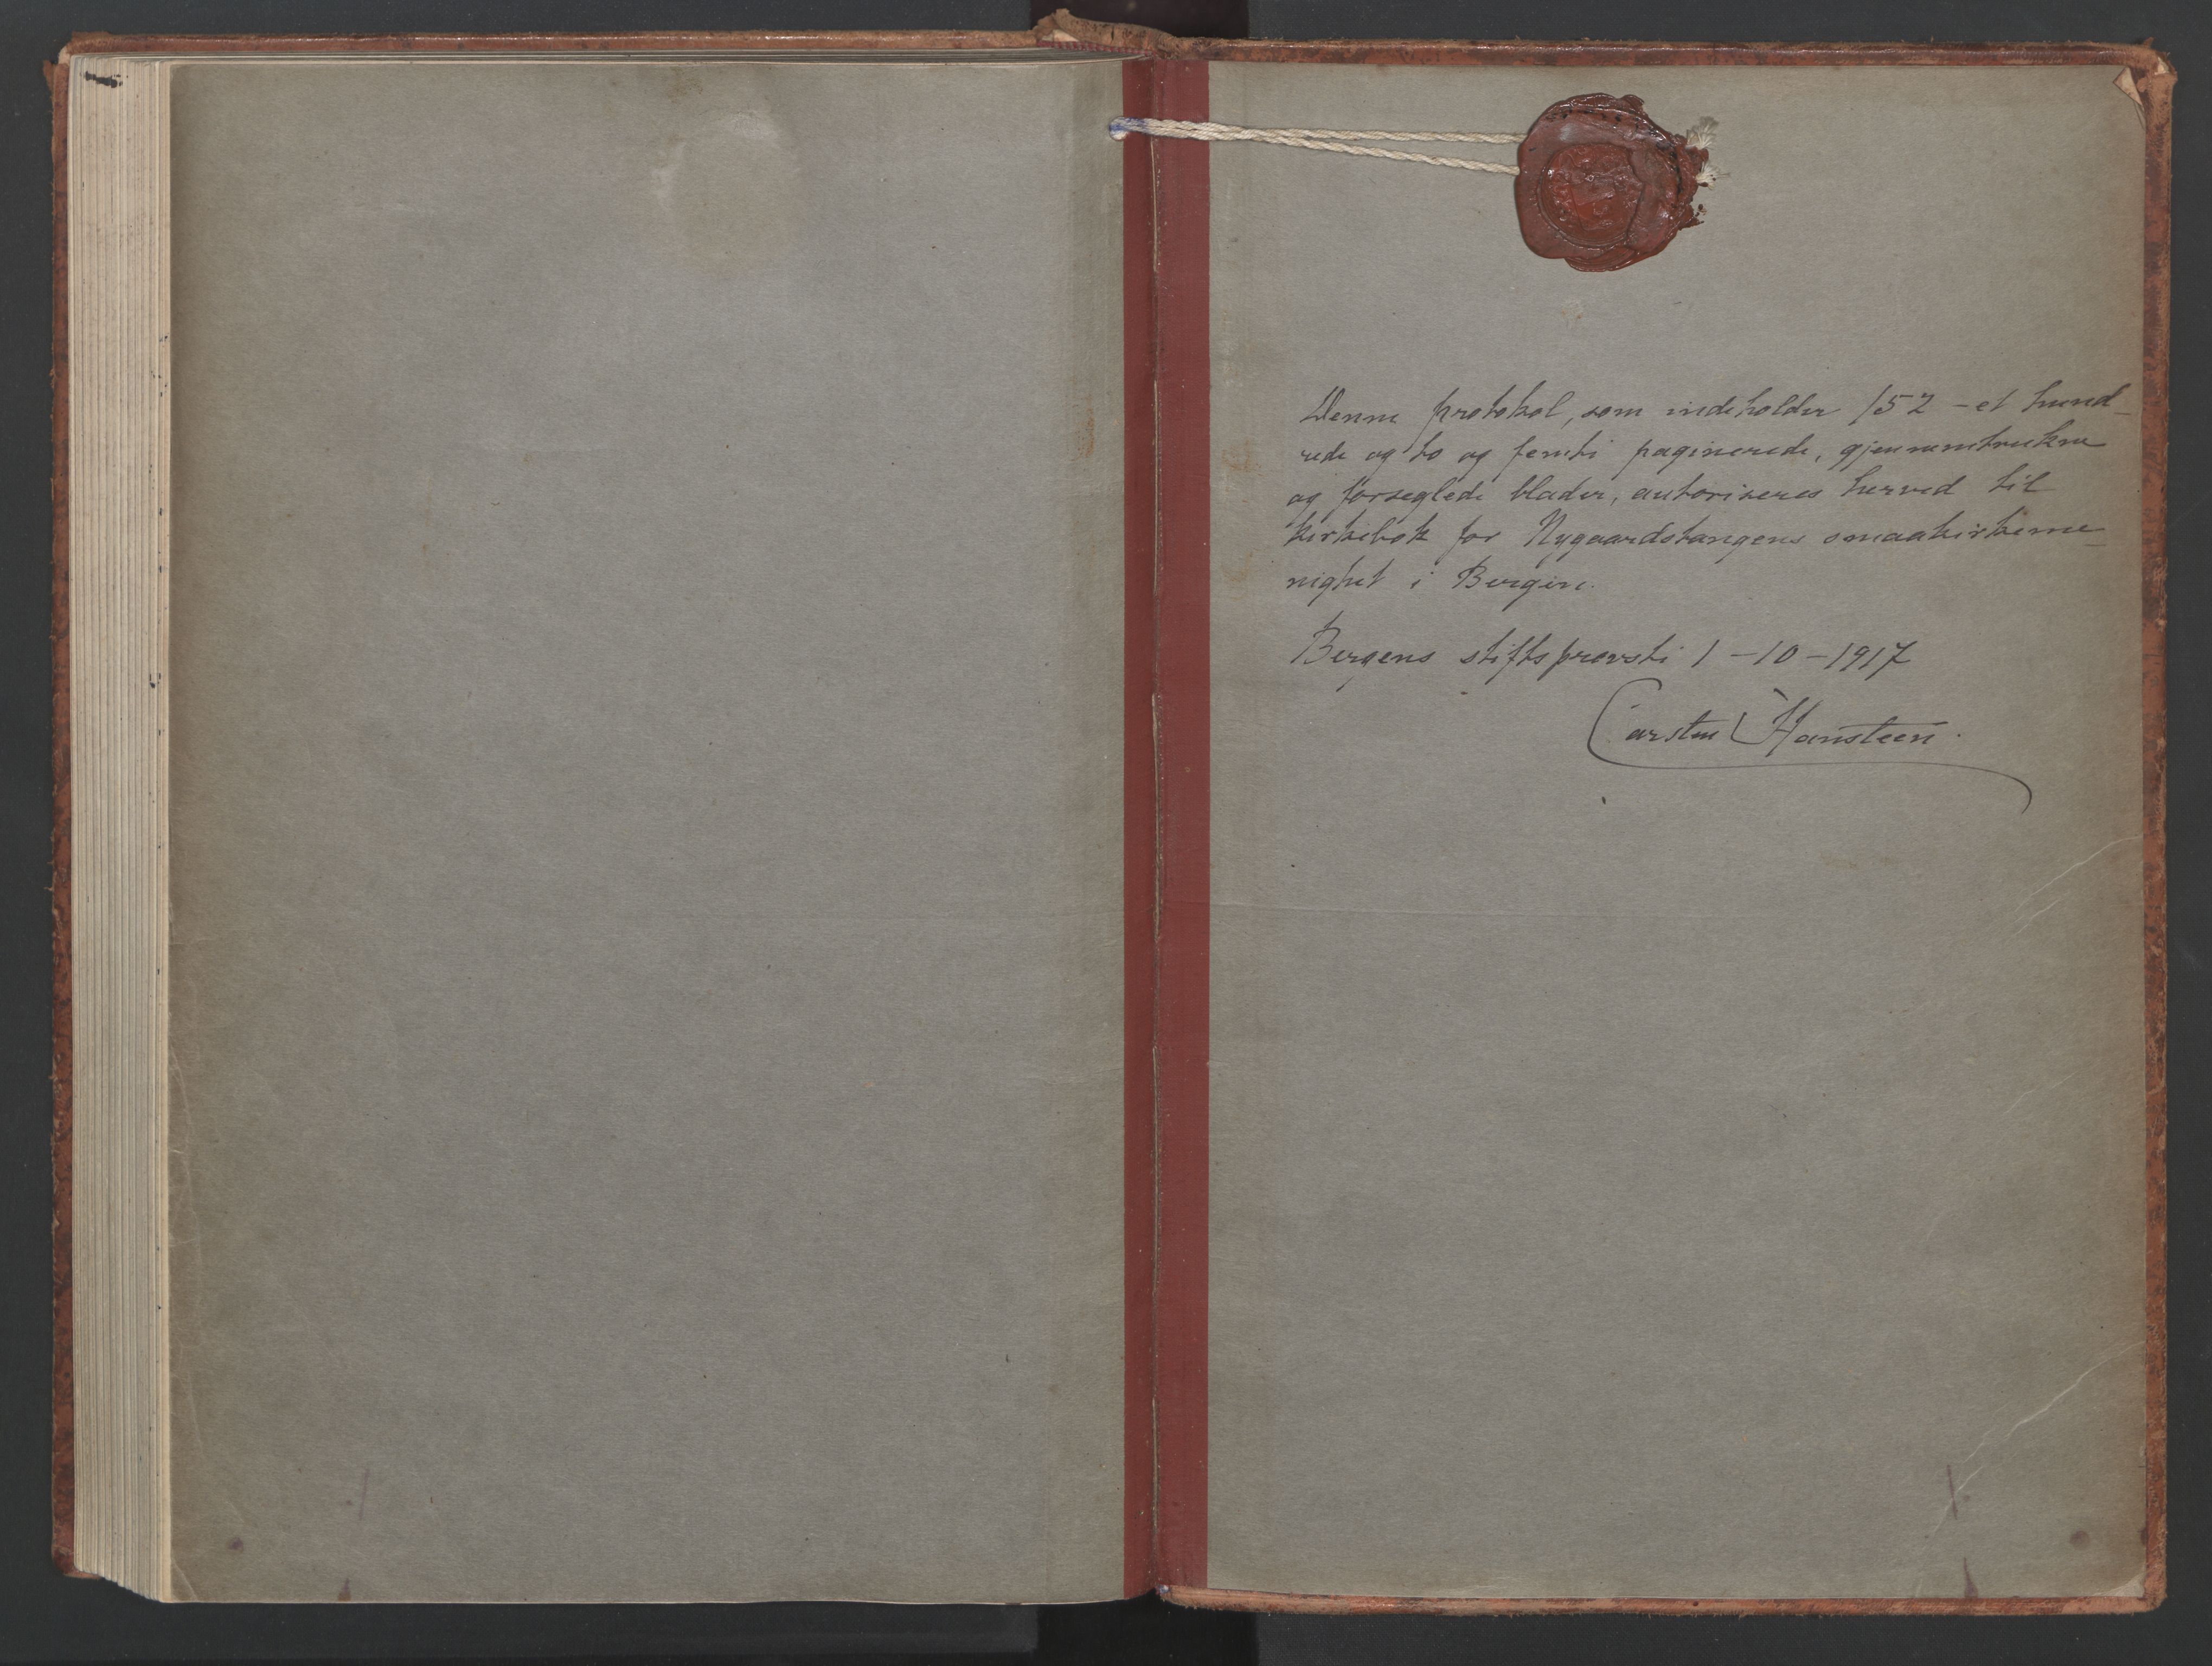 Denne protokol, som indeholder 152 - et hund-
rede og to og femti paginerede, gjennemtrukne
og forseglede blader, autoriseres herved til
kirkebok for Nygaardstangens smaakirkeme-
nighet i Bergen.
Bergens stiftsprovsti 1-10-1917
Carsten Hansteen.